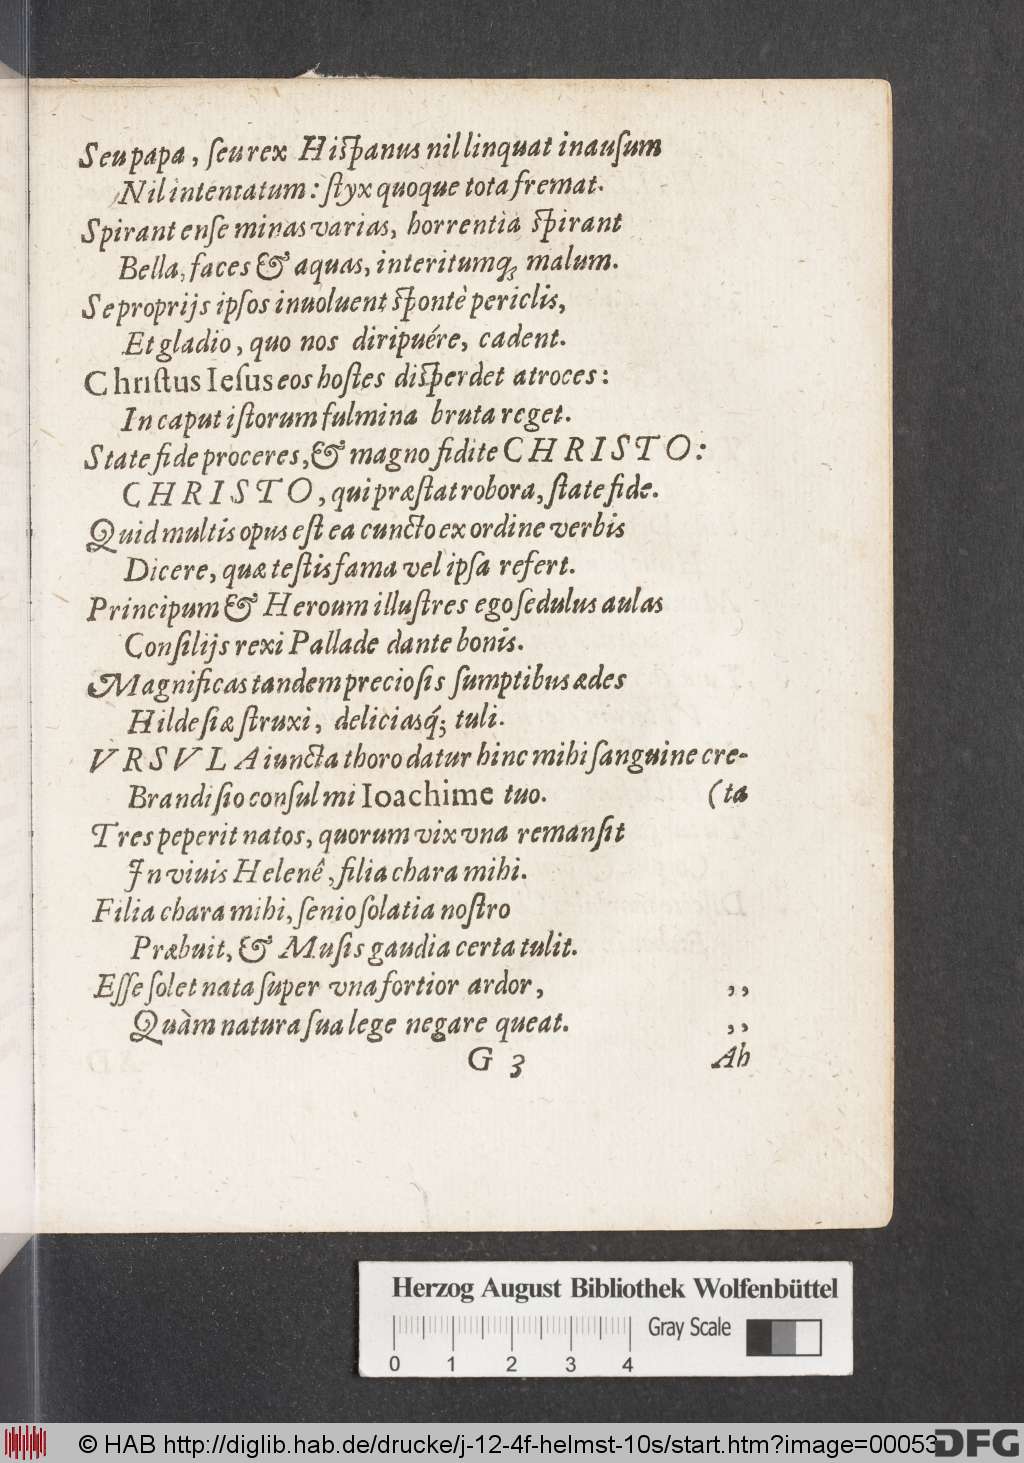 Seu papa, ſeu rex Hiſpanus nil linquat inauſum
Nil intentatum: ſtyx quoque tota fremat.
Spirant enſe minas varias, horrentia ſpirant
Bella, faces & aquas, interitumq; malum.
Se proprijs ipſos inuoluent ſpontè periclis,
Et gladio, quo nos diripuére, cadent.
Chriſtus Ieſus eos hoſtes diſperdet atroces:
In caput iſtorum fulmina bruta reget.
State fide proceres, & magno fidite CHRISTO:
CHRISTO, qui præſtat robora, ſtate fide.
Quid multis opus eſt ea cuncto ex ordine verbis
Dicere, quæ teſtis fama vel ipſa refert.
Principum & Heroum illuſtres ego ſedulus aulas
Conſilijs rexi Pallade dante bonis.
Magnificas tandem precioſis ſumptibus ædes
Hildeſiæ ſtruxi, deliciasq́; tuli.
VRSVLA iuncta thoro datur hinc mihi ſanguine cre-
Brandiſio conſul mi Ioachime tuo. (ta
Tres peperit natos, quorum vix vna remanſit
In viuis Helenê, filia chara mihi.
Filia chara mihi, ſenio ſolatia noſtro
Præbuit, & Muſis gaudia certa tulit.
Eſſe ſolet nata ſuper vna fortior ardor, ,,
Quàm natura ſua lege negare queat. ,,
G 3 Ab
Herzog August Bibliothek Wolfenbüttel
Gray Scale
0 1 2 3 4
© HAB http://diglib.hab.de/drucke/j-12-4f-helmst-10s/start.htm?image=00053
DFG